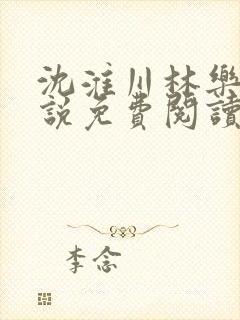 沈淮川林樂
說免費閱讀
李念